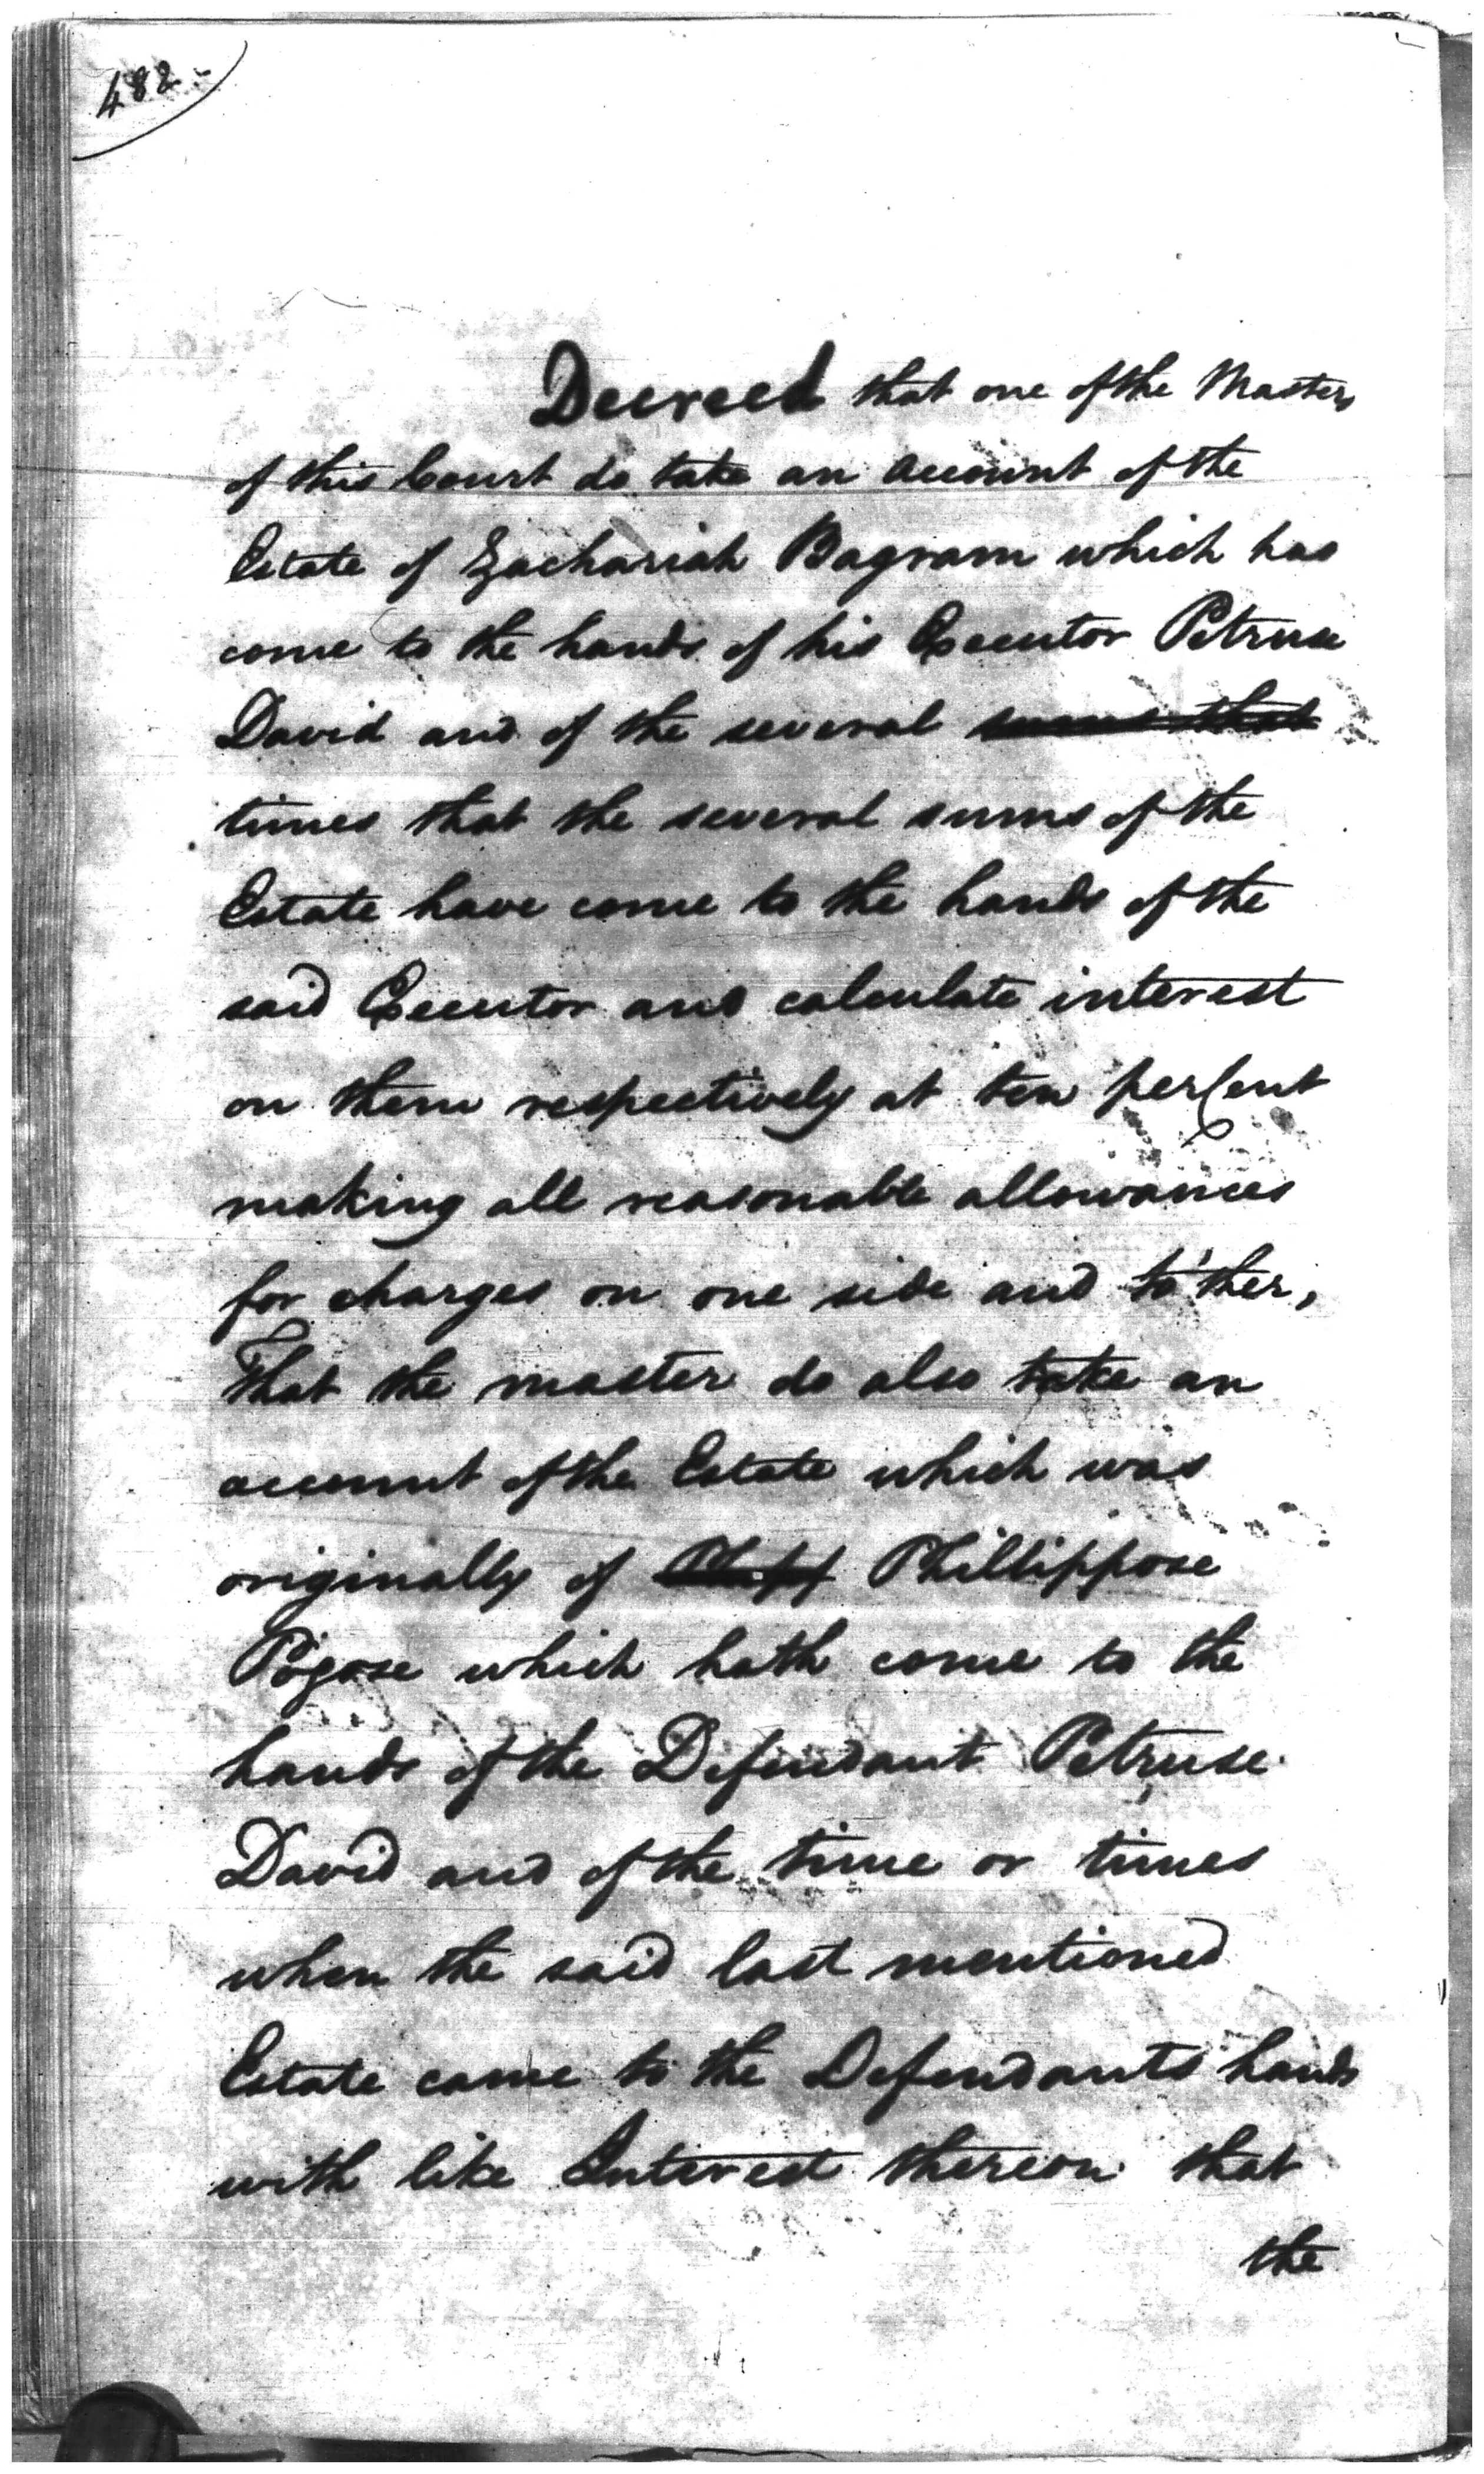 482.-
Decreed that one of the Masters
of this Court do take an account of the
Estate of Zachariah Bagram which has
come to the hands of his Executor Petruse
David and of the several sums that
times that the several sums of the
Estate have come to the hands of the
said Executor and calculate interest
on them respectively at ten perCent
making all reasonable allowances
for charges on one side and to'ther,
That the master do also take an
account of the Estate which was
originally of Phillippose
Pogose which hath come to the
hands of the Defendant Petruse
David and of the time or times
when the said last mentioned
Estate came to the Defendants hands
with like Interest thereon that
the